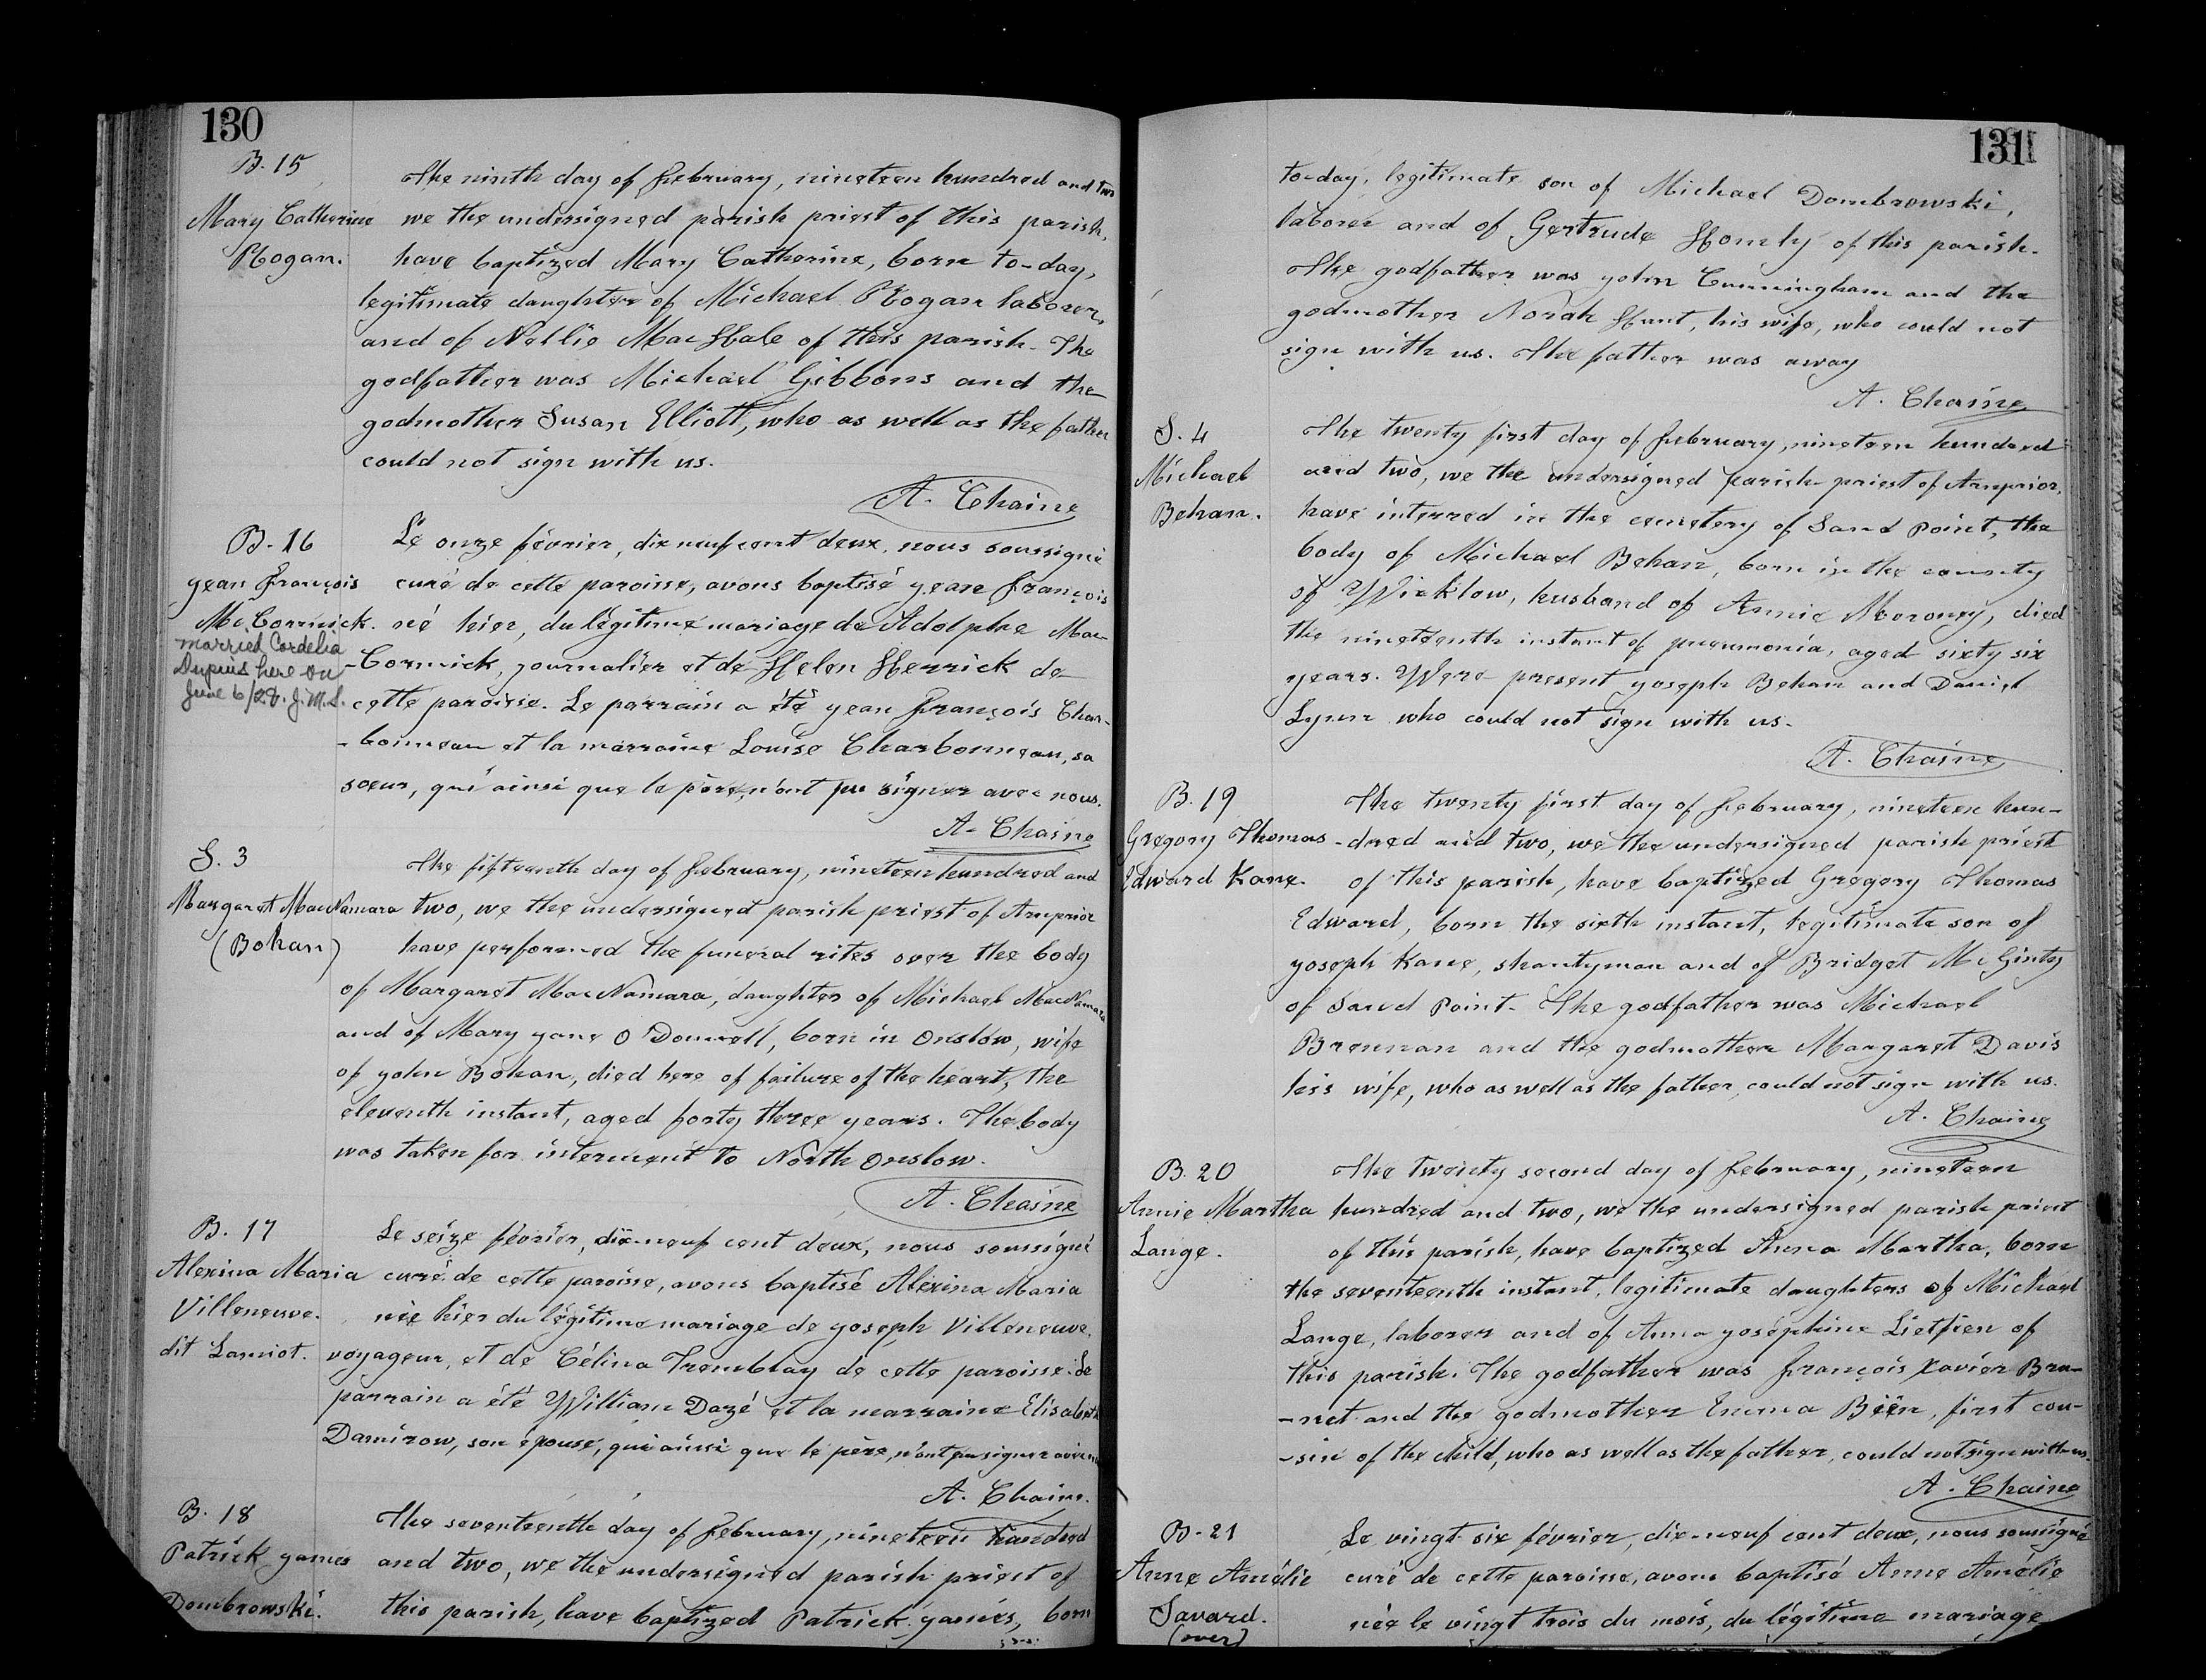 130
B. 15
Mary Catherine
Hogan.
The ninth day of February, nineteen hundred and two
we the undersigned parish priest of this parish,
have baptized Mary Catherine, born to-day,
legitimate daughter of Michael Hogan laborer,
and of Nellie Mac Hale of this parish. The
godfather was Michael Gibbons and the
godmother Susan Elliott, who as well as the father
could not sign with us.
A. Chaine
B. 16
Jean François
McCormick.
married Cordelia
Dupuis here on
June 6/28. J.M.S.
Le onze février, dix neuf cent deux, nous soussigné
curé de cette paroisse, avons baptisé Jean François
né hier, du légitime mariage de Adolphe Mac-
-Cormick, journalier et de Helen Herrick de
cette paroisse. Le parrain a été Jean François Char-
-bonneau et la marraine Louise Charbonneau, sa
soeur, qui ainsi que le père, n'ont pu signer avec nous.
A. Chaine
S. 3
Margaret MacNamara
(Bohan)
The fifteenth day of February, nineteen hundred and
two, we the undersigned parish priest of Arnprior
have performed the funeral rites over the body
of Margaret MacNamara, daughter of Michael MacNamara
and of Mary Jane O'Donnell, born in Onslow, wife
of John Bohan, died here of failure of the heart, the
eleventh instant, aged forty three years. The body
was taken for interment to North Onslow.
A. Chaine
B. 17
Alexina Maria
Villeneuve.
dit Lamiot.
Le seize février, dix-neuf cent deux, nous soussigné
curé de cette paroisse, avons baptisé Alexina Maria
née hier du légitime mariage de Joseph Villeneuve,
voyageur, et de Célina Tremblay de cette paroisse. Le
parrain a été William Dazé et la marraine Elisabeth
Damirow, son épouse, qui aussi que le père, n'ont pu signer avec nous
A. Chaine.
B. 18
Patrick James
Dombrowski.
The seventeenth day of February, nineteen hundred
and two, we the undersigned parish priest of
this parish, have baptized Patrick James, born
131
to-day, legitimate son of Michael Dombrowski,
laborer and of Gertrude Homly of this parish.
The godfather was John Cunningham and the
godmother Norah Hunt, his wife, who could not
sign with us. The father was away
A. Chaine
S. 4
Michael
Behan.
The twenty first day of February, nineteen hundred
and two, we the undersigned parish priest of Arnprior,
have interred in the cemetery of Sand Point, the
body of Michael Behan, born in the county
of Wicklow, husband of Annie Moroney, died
the nineteenth instant of pneumonia, aged sixty six
years. Were present Joseph Behan and Daniel
Lynn who could not sign with us.
A. Chaine
B. 19
Gregory Thomas
Edward Kane.
The twenty first day of February, nineteen hun-
-dred and two, we the undersigned parish priest
of this parish, have baptized Gregory Thomas
Edward, born the sixth instant, legitimate son of
Joseph Kane, shantyman and of Bridget McGinty
of Sand Point. The godfather was Michael
Brennan and the godmother Margaret Davis
his wife, who as well as the father, could not sign with us.
A. Chaine
B. 20
Annie Martha
Lange.
The twenty second day of February, nineteen
hundred and two, we the undersigned parish priest
of this parish, have baptized Anna Martha, born
the seventeenth instant, legitimate daughters of Michael
Lange, laborer and of Anna Josephine Lietfien of
this parish. The godfather was François Xavier Bru-
-net and the godmother Emma Bëën, first cou-
-sin of the child, who as well as the father, could not sign with us.
A. Chaine
B. 21
Anne Amélie
Savard.
(over)
Le vingt six février, dix-neuf cent deux, nous soussigné
curé de cette paroisse, avons baptisé Anne Amélie
née le vingt trois du mois, du légitime mariage